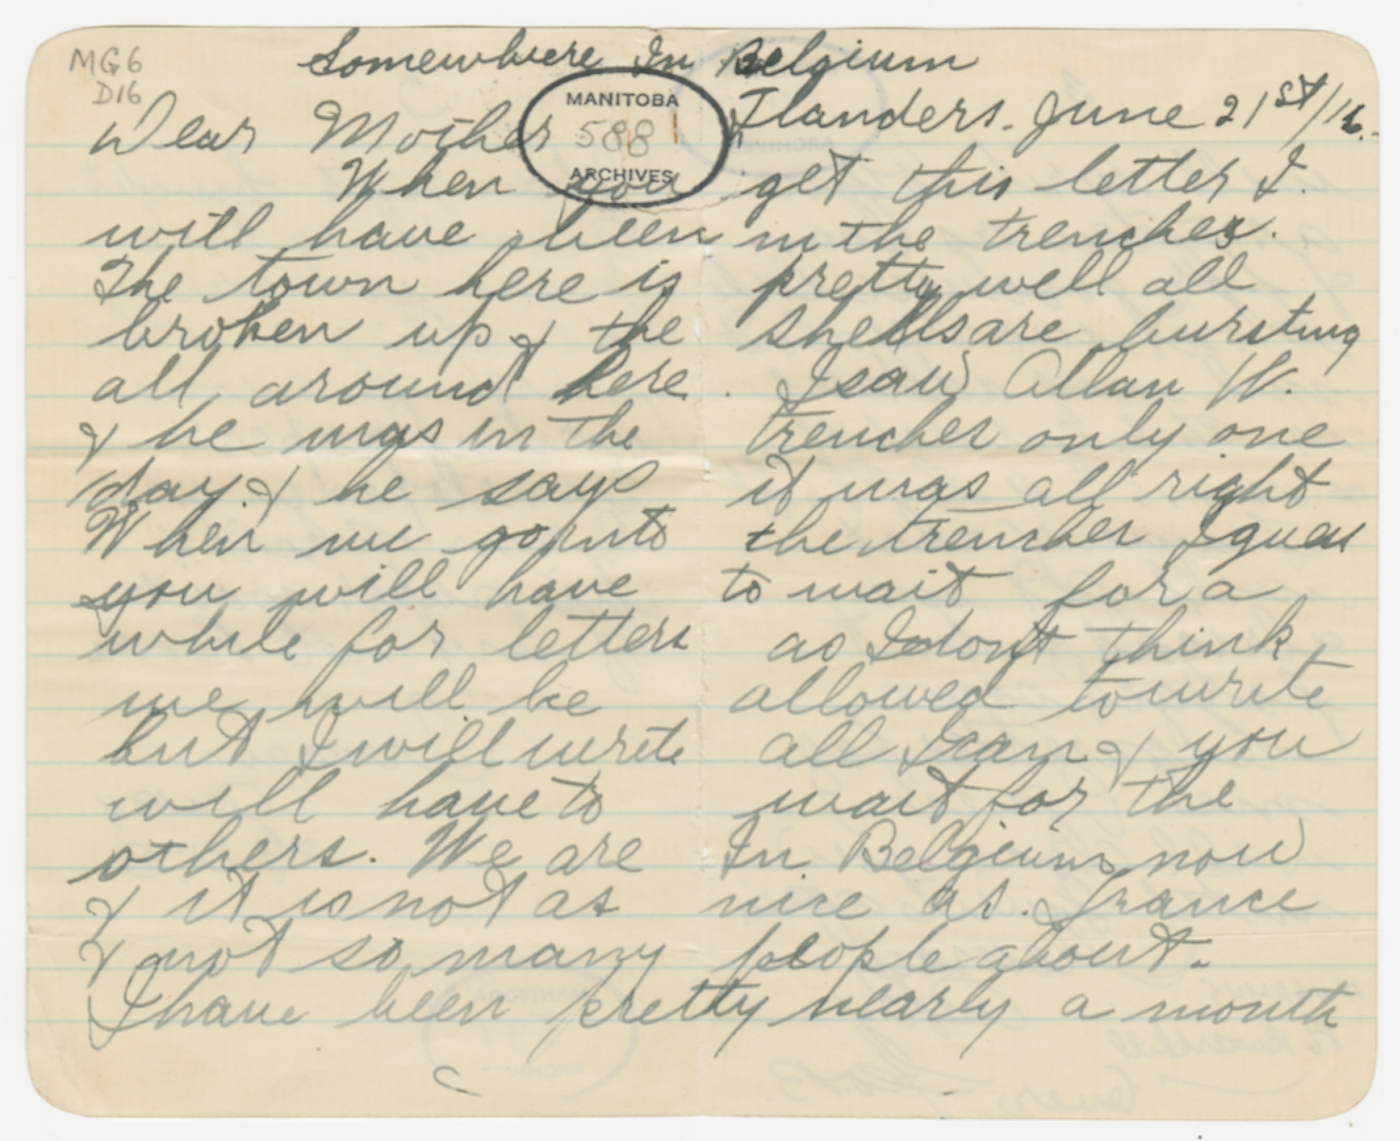 MG6
D16
Somewhere In Belgium
Flanders. June 21st/16.
MANITOBA
588
ARCHIVES
Dear Mother
When you get this letter I.
will have been in the trenches.
The town here is pretty well all
broken up & the shells are bursting
all around here. I saw Allan W.
& he was in the trenches only one
day. & he says it was all right
When we go into the trenches I guess
you will have to wait for a
while for letters as I dont think
we will be allowed to write
but I will write all I can & you
will have to wait for the
others. We are In Belgium now
& it is not as nice as. France
& not so many people about.
I have been pretty nearly a month